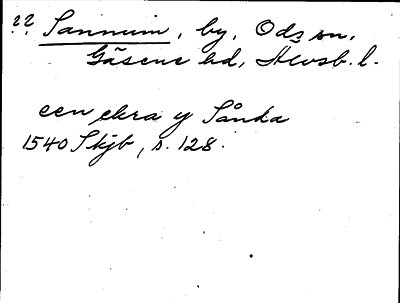 22 Sannum, by, Ods sn.
Gäsene hd, Älvsb. l.
een ekra y Sånda
1540 Skjb, s. 128.